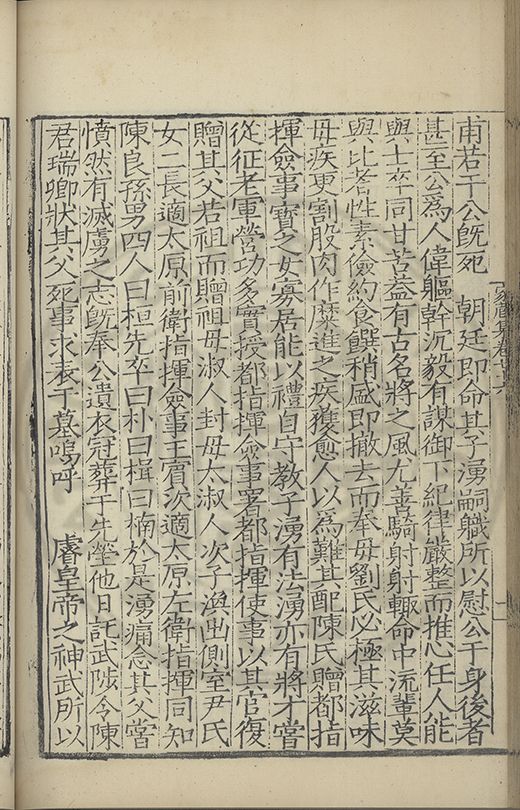 甫若干公旣死　朝廷即命其子湧嗣職所以慰公于身後者
甚至公爲人偉軀幹沉毅有謀御下紀律嚴整而推心任人能
與士卒同甘苦蓋有古名將之風尤善騎射射輒命中流輩莫
與比者性素儉約食饌稍盛即撤去而奉母劉氏必極其滋味
母疾更割股肉作糜進之疾獲愈人以爲難其配陳氏贈都指
揮僉事寶之女寡居能以禮自守教子湧有法湧亦有將才嘗
從征老軍營功多實授都指揮僉事署都指揮使事以其官復
贈其父若祖而贈祖母淑人封母太淑人次子出側室尹氏
女二長適太原前衛指揮僉事王賓次適太原左衛指揮同知
陳良孫男四人曰桓先卒曰朴曰楫曰楠於是湧痛念其父嘗
憤然有滅虜之志旣奉公遺衣冠葬于先塋他日託武陟令陳
君瑞卿狀其父死事求表于墓嗚呼　睿皇帝之神武所以